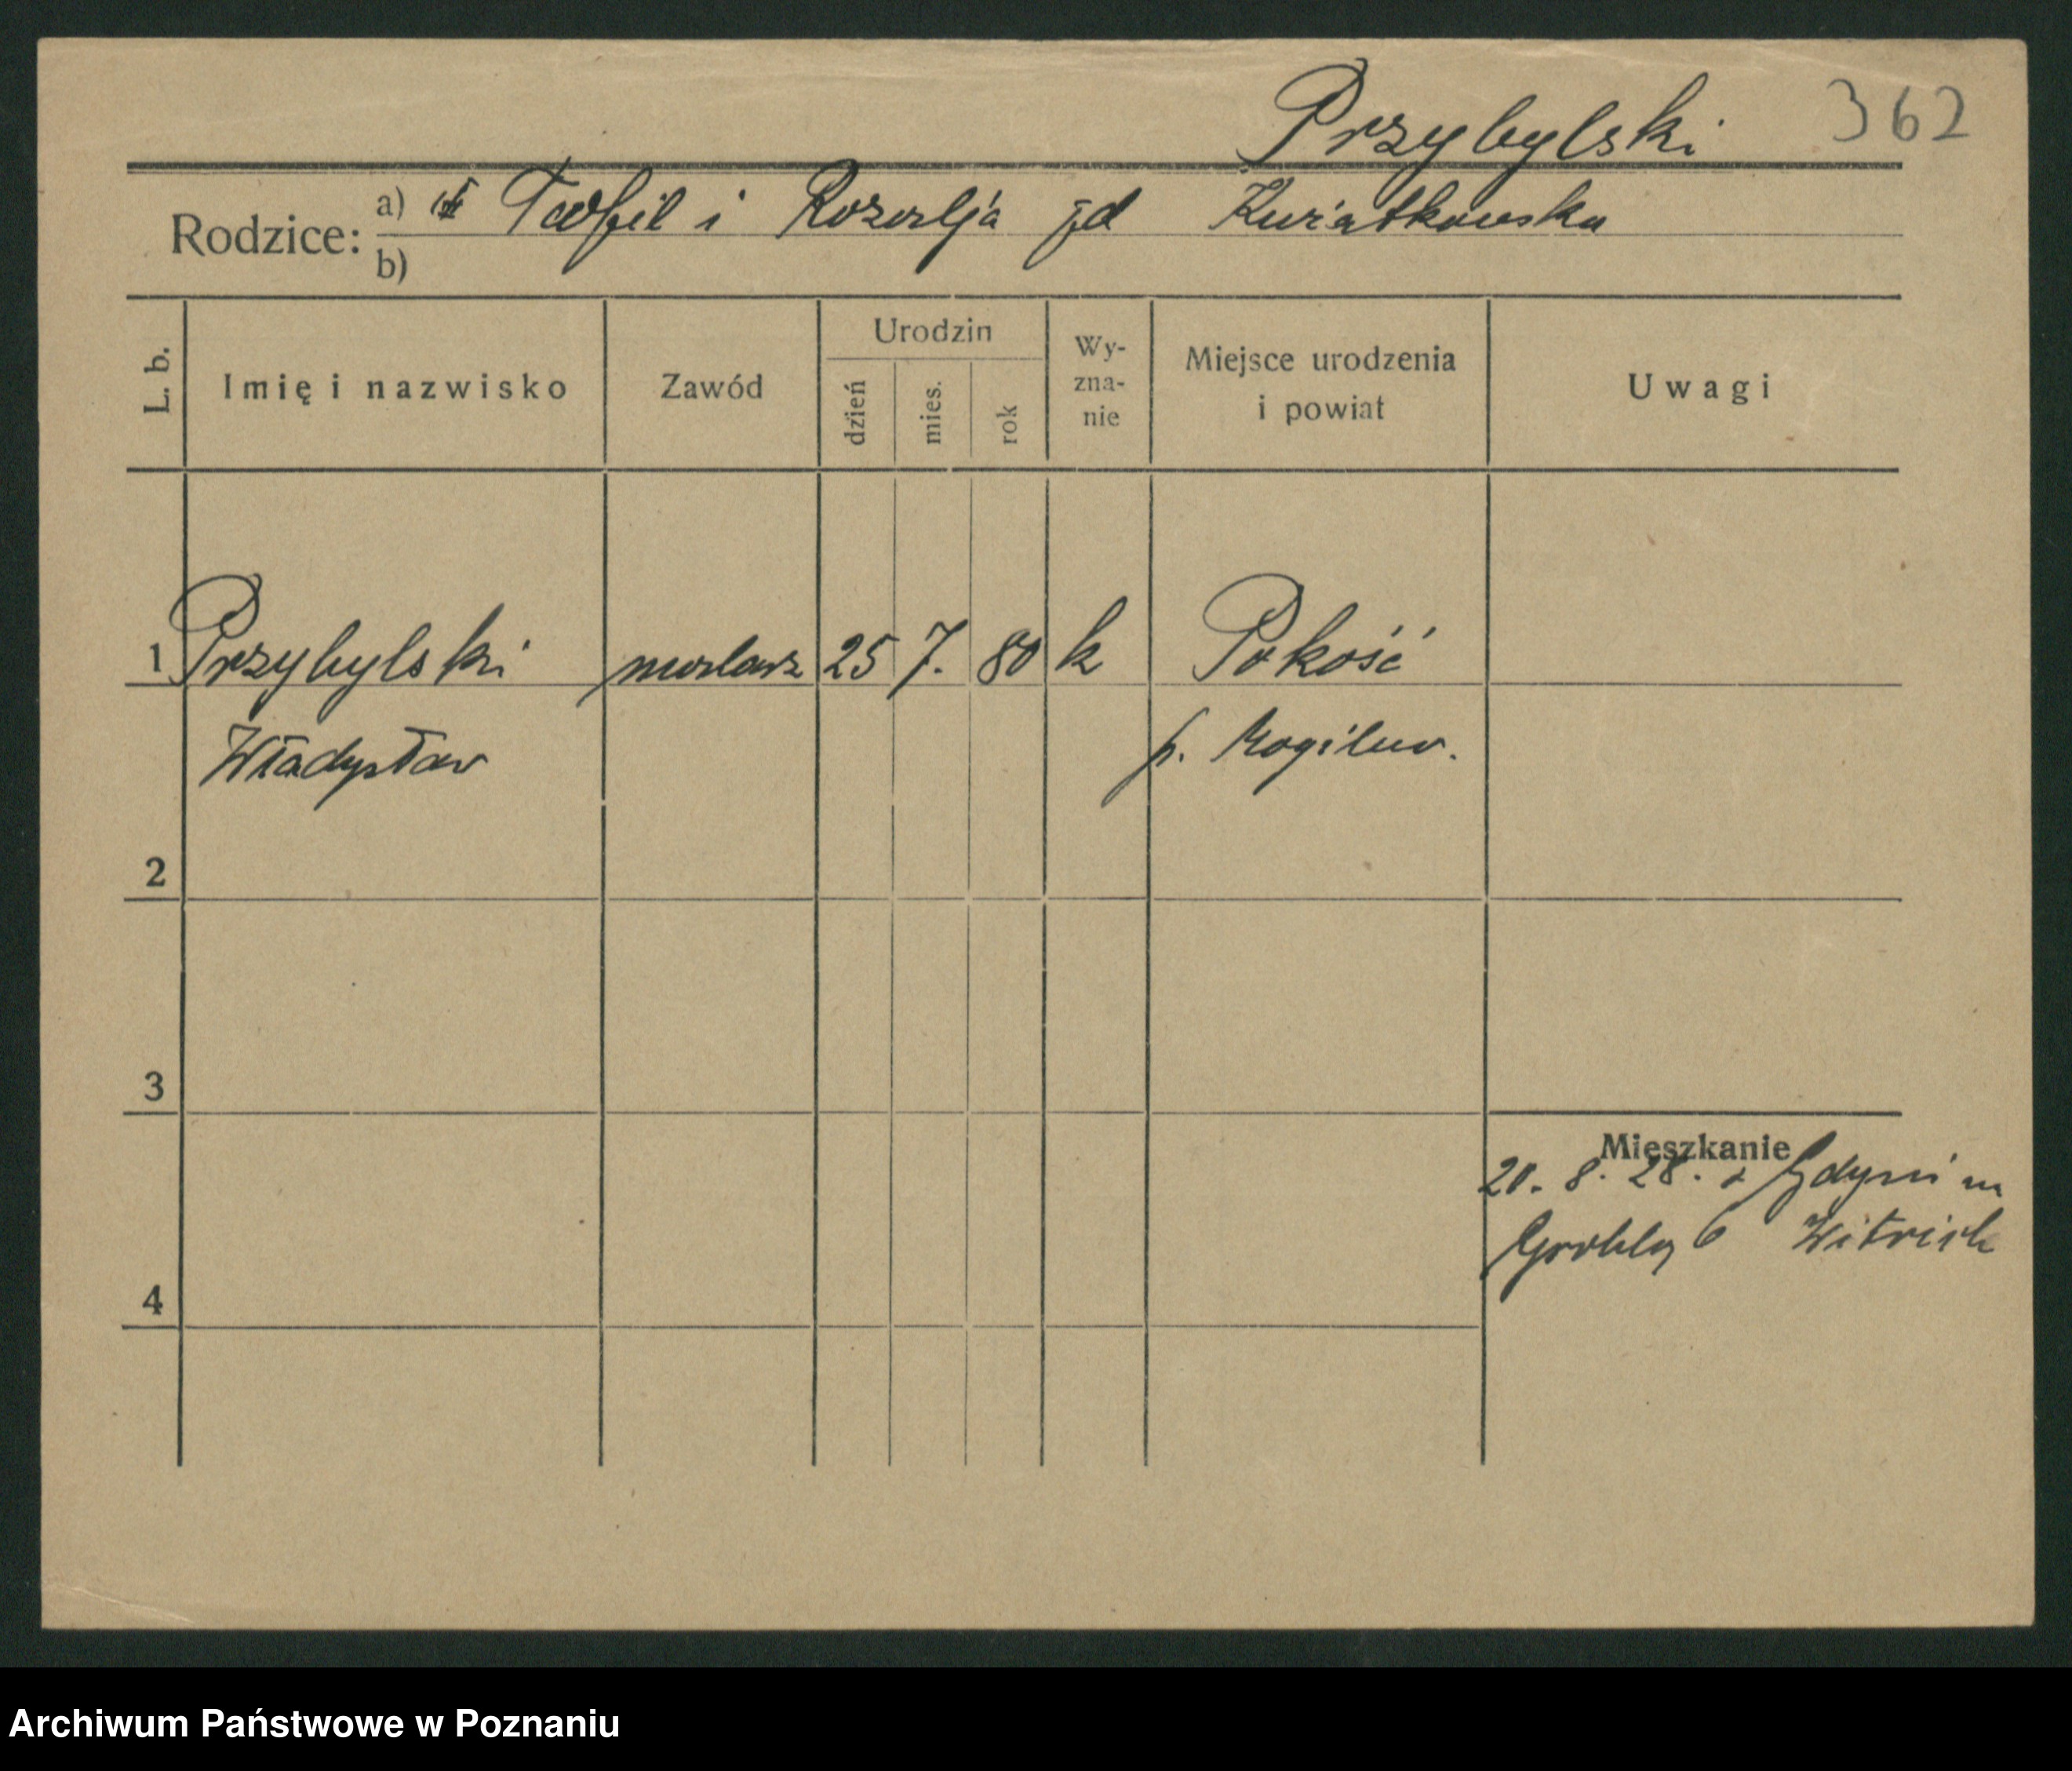 Przybylski 362
Rodzice: a) Teofil i Rozalja zd Kwiatkowska
b)
L. b.
Imię i nazwisko
Zawód
Urodzin
dzień
mies.
rok
Wy-
zna-
nie
Miejsce urodzenia
i powiat
Uwagi
1 Przybylski malarz 25 7. 80 k Pakość
Władysław p. Mogilno.
2
3
Mieszkanie
20. 8. 28. z Gdyni na
Groblę 6
4
Archiwum Państwowe w Poznaniu